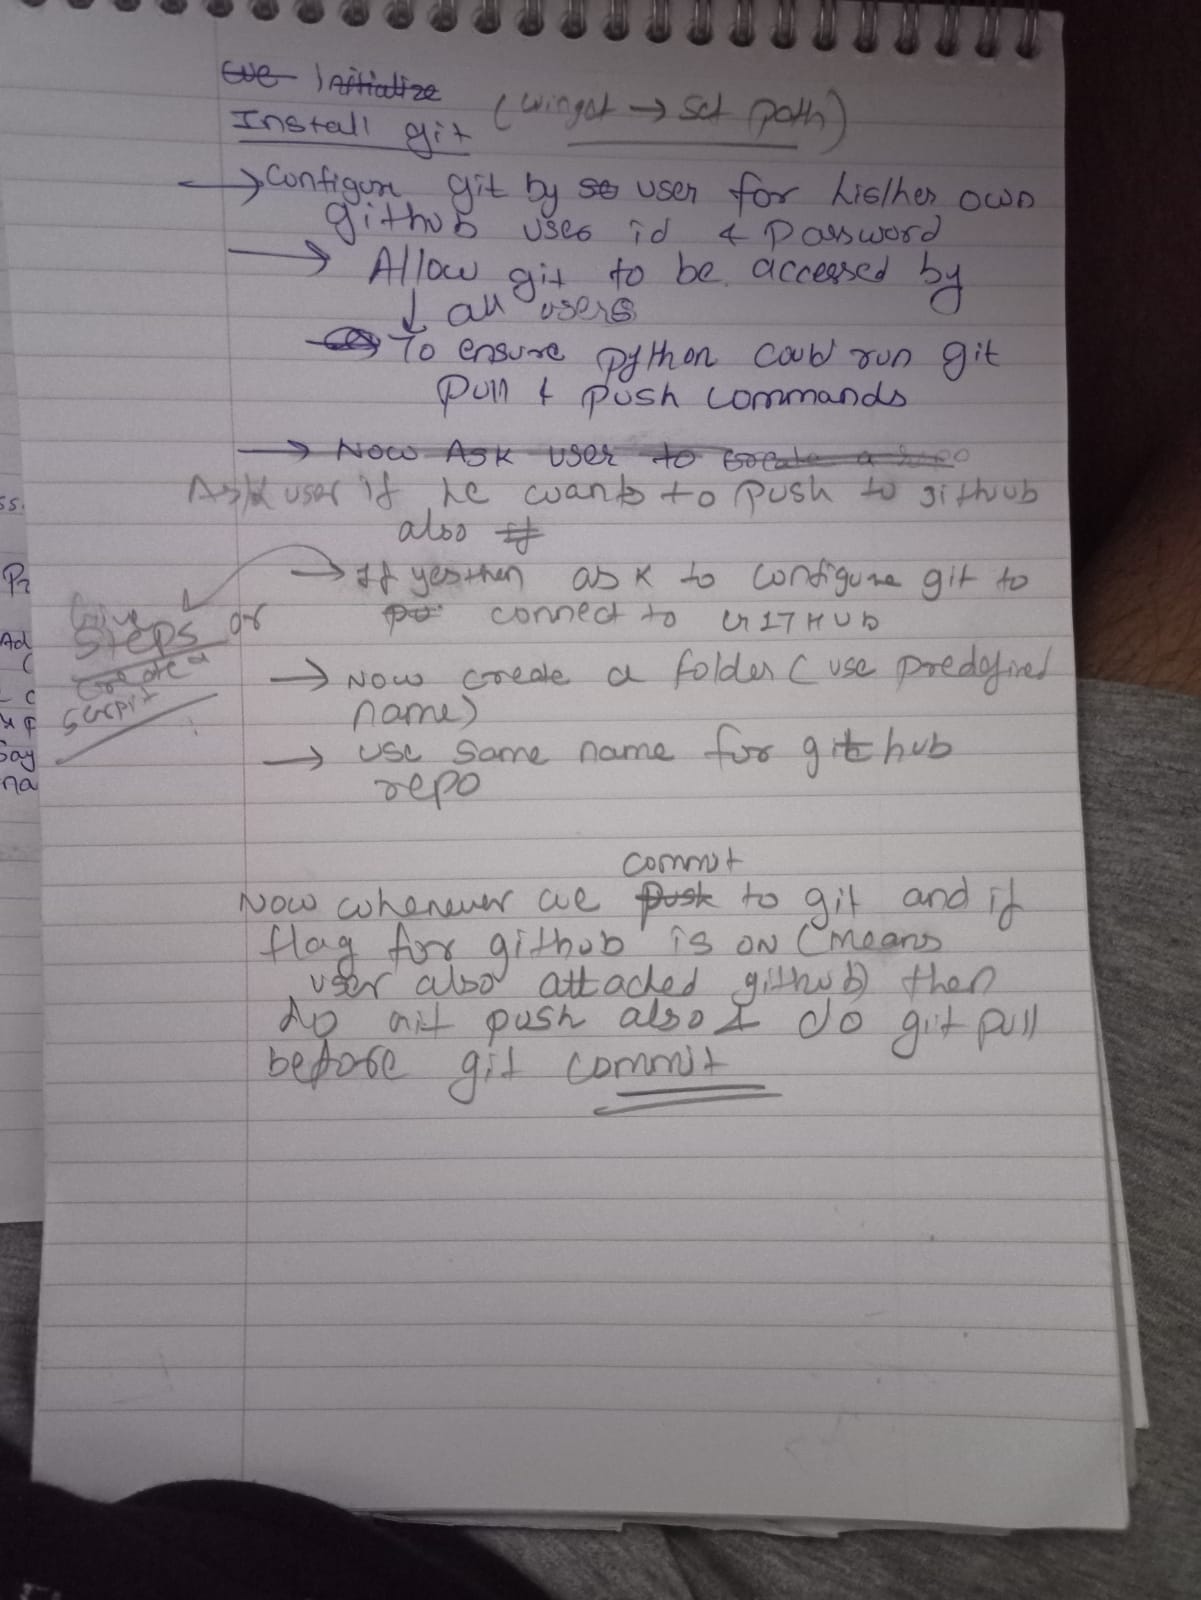 we Initialize
Install git (winget → set path)
→ Configure git by so user for his/her own
github user id & password
→ Allow git to be accessed by
↓ all users
To ensure python could run git
pull & push commands
→ Now Ask user to create a repo
Ask user if he wants to push to github
also if
→ If yes then ask to configure git to
connect to GITHUB
Give
steps or
create a
script
→ Now create a folder (use predefined
name)
→ use same name for github
repo
commit
Now whenever we push to git and if
flag for github is ON (means
user also attached github) then
do git push also & do git pull
before git commit
ss.
Pr
Ad
say
na